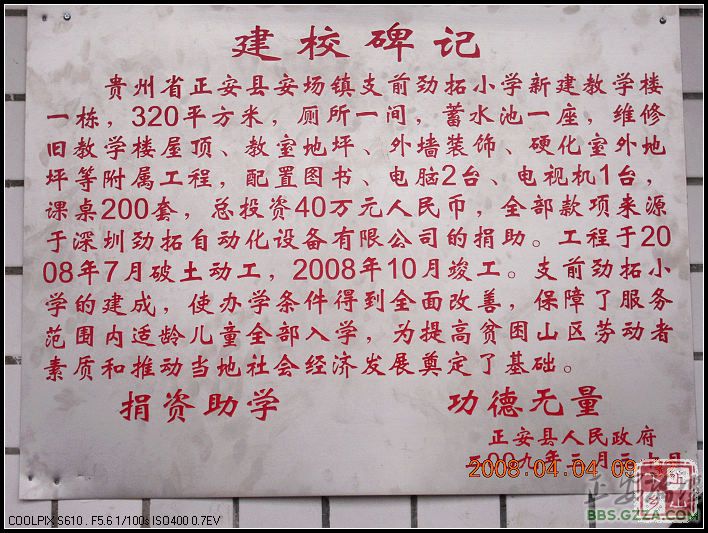 建校碑记
贵州省正安县安场镇支前劲拓小学新建教学楼
一栋，320平方米，厕所一间，蓄水池一座，维修
旧教学楼屋顶、教室地坪、外墙装饰、硬化室外地
坪等附属工程，配置图书、电脑2台、电视机1台，
课桌200套，总投资40万元人民币，全部款项来源
于深圳劲拓自动化设备有限公司的捐助。工程于20
08年7月破土动工，2008年10月竣工。支前劲拓小
学的建成，使办学条件得到全面改善，保障了服务
范围内适龄儿童全部入学，为提高贫困山区劳动者
素质和推动当地社会经济发展奠定了基础。
捐资助学 功德无量
正安县人民政府
二00九年三月二十日
2008.04.04 09
BBS.GZZA.COM
COOLPIX S610 . F5.6 1/100s ISO400 0.7EV